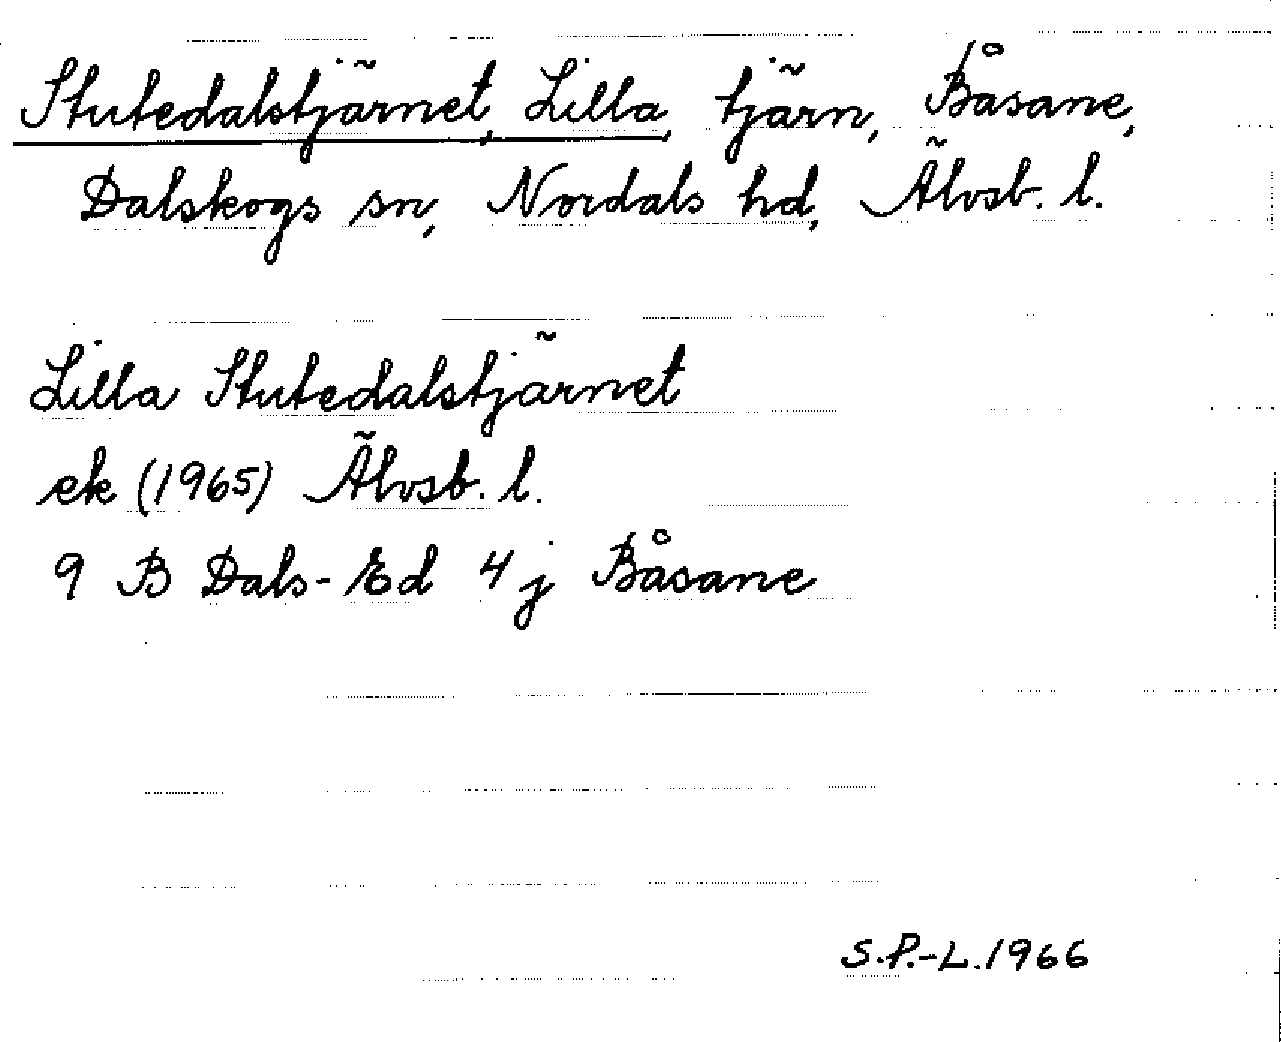 Stutedalstjärnet, Lilla, tjärn, Båsane,
Dalskogs sn, Nordals hd, Älvsb. l.
Lilla Stutedalstjärnet
ek (1965) Älvsb. l.
9 B Dals-Ed 4 j Båsane
S.P.-L. 1966